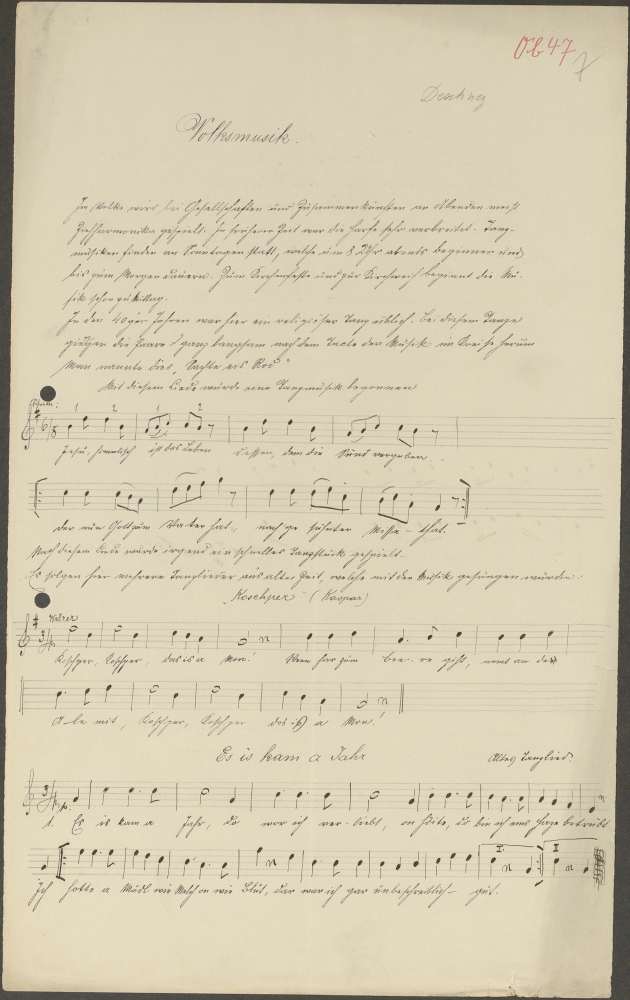 Ob 47
7
Volksmusik.
Im Volke wird bei Gesellschaften und Zusammenkünften an Abenden meist
Ziehharmonika gespielt. In früherer Zeit war die Harfe sehr verbreitet. Tanz-
musiken finden an Sonntagen statt, welche um 8 Uhr abends beginnen und
bis zum Morgen dauern. Zum Kirchenfeste und zur Kirchweih beginnt die Mu-
sik schon zu Mittag.
In den 40ger Jahren war hier ein religiöser Tanz üblich. Bei diesem Tanze
giengen die Paare ganz langsam nach dem Tacte der Musik im Kreise herum
Man nannte dies
Mit diesem Liede wurde eine Tanzmusik begonnen
1 2 1 2
Jesu, himmlisch ist das Leben dessen, dem die Sünd vergeben
der nun Gott zum Vater hat, nach ge sühnter Misse - that.
Nach diesem Liede wurde irgend ein schnelles Tanzstück gespielt.
Es folgen hier mehrere Tanzlieder aus alter Zeit, welche mit der Musik gesungen wurden:
Koschper (Kaspar)
Walzer
Koschper, Koschper, das is a Mon! Wenn har zum bee - re giht, nimt an de
O - le mit, Koschper, Koschper das is a Mon!
Es is kam a Jahr
Altes Tanzlied.
1. Es is kam a Jahr, do wor ich ver - liebt, on heite, do bin ich ans Harze betrübt
Ich hotte a Mädl wie Milch on wie Blut, dar war ich gar unbeschreiblich - gut.
I. II